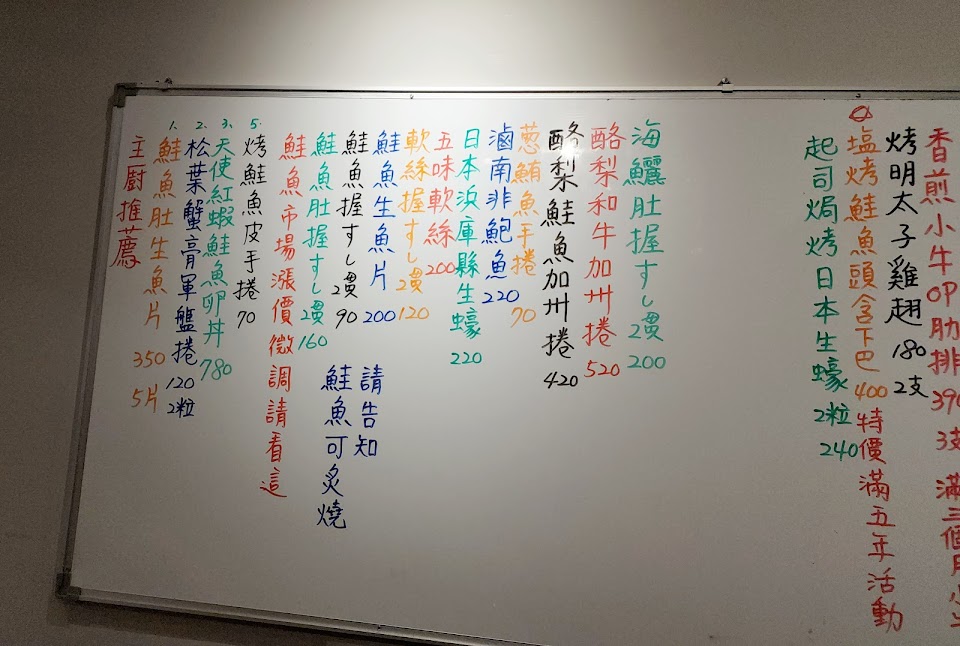 香煎小牛OP肋排390 3支 滿三個月小
烤明太子雞翅 180 2支
塩烤鮭魚頭含下巴 400 特價滿五年活動
起司焗烤日本生蠔 2粒 240
海鱺肚握すし2貫 200
酪梨和牛加州捲 520
酪梨鮭魚加州捲 420
葱鮪魚手捲 70
滷南非鮑魚 220
日本浜庫縣生蠔 220
五味軟絲 200
軟絲握すし2貫 120
鮭魚生魚片 200
鮭魚握すし2貫 90
鮭魚肚握すし2貫 160
請告知
鮭魚可炙燒
鮭魚市場漲價微調請看這
5. 烤鮭魚皮手捲 70
3. 天使紅蝦鮭魚卵丼 780
2. 松葉蟹膏軍艦捲 120 2粒
1. 鮭魚肚生魚片 350 5片
主廚推薦